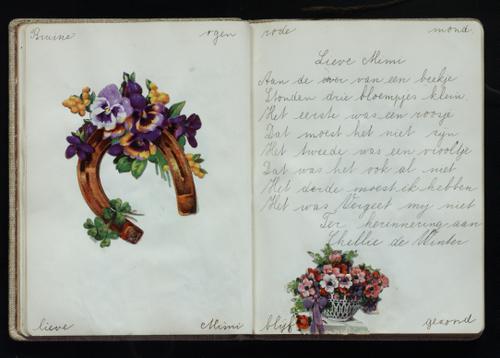 Bruine ogen rode mond
Lieve Mimi
Aan de oever van een beekje
Stonden drie bloempjes klein.
Het eerste was een roosje
Dat moest het niet zijn
Het tweede was een viooltje
Dat was het ook al niet
Het derde moest ik hebben
Het was Vergeet mij niet
Ter herinnering aan
Chellie de Winter
lieve Mimi blijf gezond